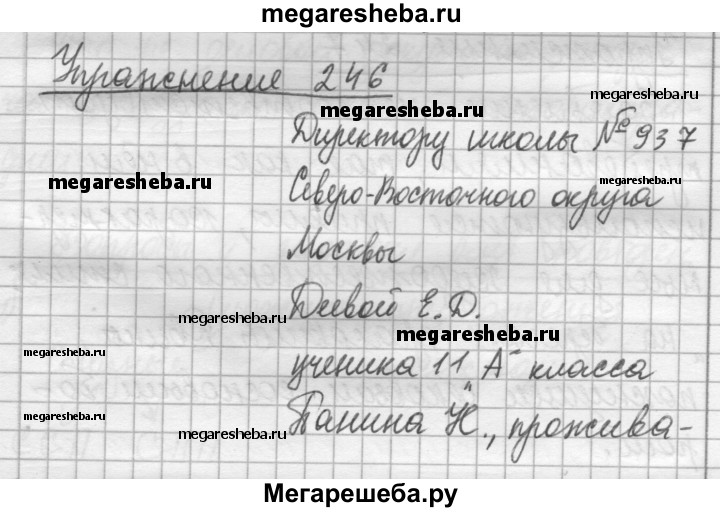 megaresheba.ru
Упражнение 246
megaresheba.ru
megaresheba.ru
Директору школы № 937
megaresheba.ru
megaresheba.ru
Северо-Восточного округа
Москвы
Деевой Е.Д.
megaresheba.ru
megaresheba.ru
megaresheba.ru
ученика 11 "А" класса
megaresheba.ru
megaresheba.ru
Панина Н., прожива-
megaresheba.ru
Мегарешеба.ру